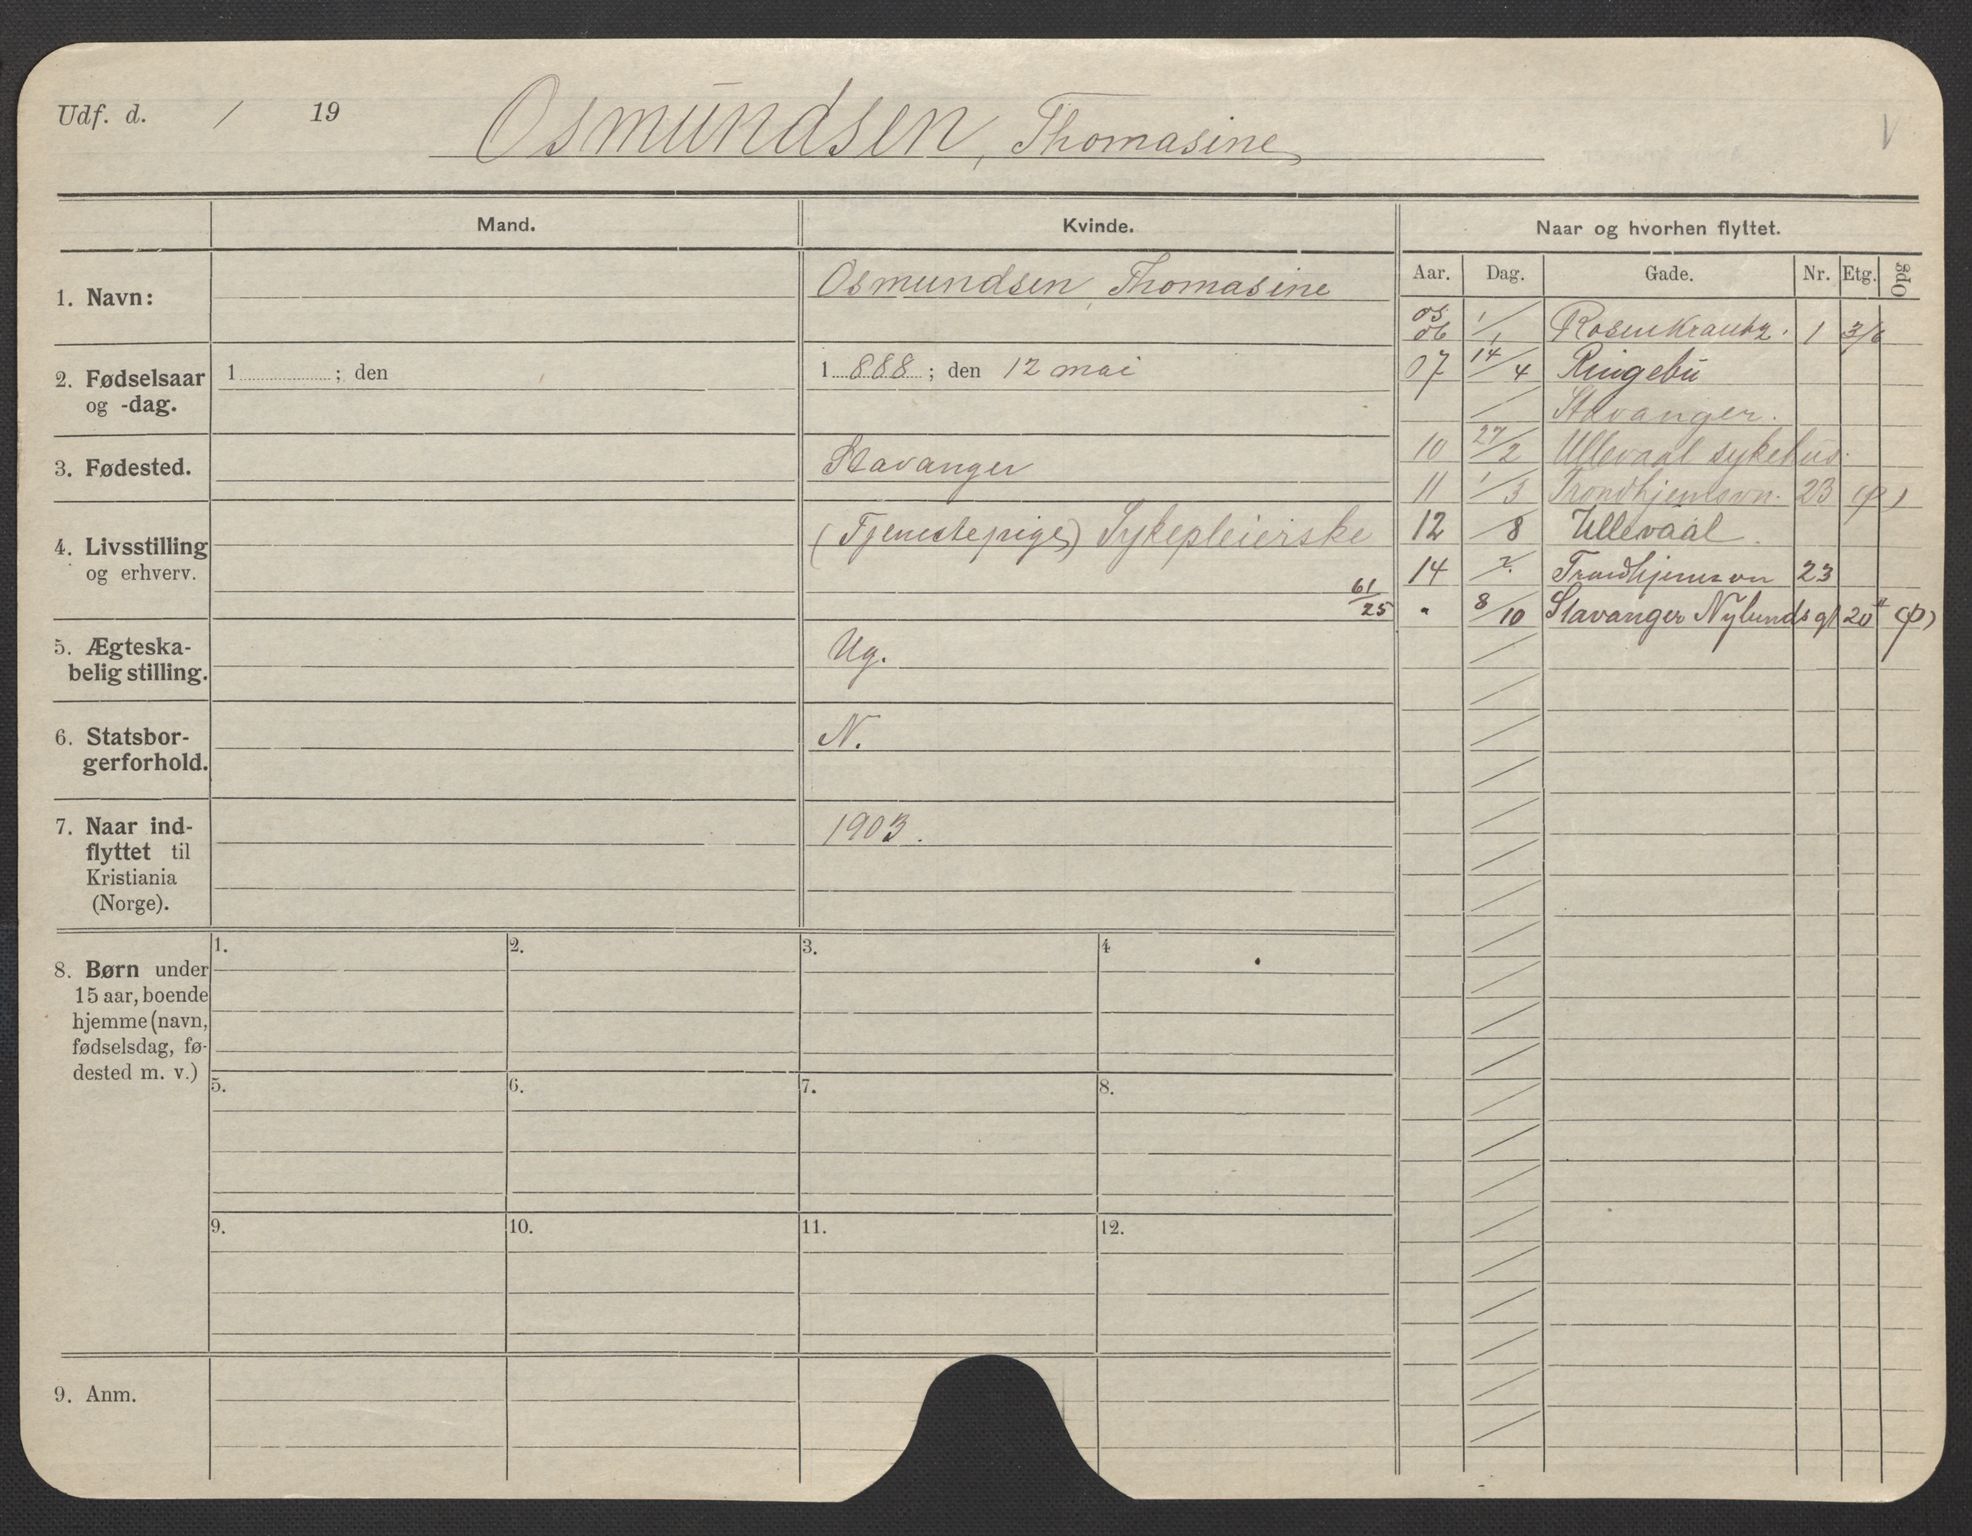 Udf. d. / 19
Osmundsen, Thomasine
Mand. Kvinde. Naar og hvorhen flyttet.
Aar. Dag. Gade. Nr. Etg. Opg
1. Navn: Osmundsen, Thomasine
2. Fødselsaar og -dag. 1 ; den 1 888 ; den 12 mai
3. Fødested. Stavanger
4. Livsstilling og erhverv. (Tjenestepige) Sykepleierske
61/25
5. Ægteska-
belig stilling. Ug.
6. Statsbor-
gerforhold. N.
7. Naar ind-
flyttet til
Kristiania
(Norge). 1903.
8. Børn under
15 aar, boende
hjemme (navn,
fødselsdag, fø-
dested m. v.)
1. 2. 3. 4
5. 6. 7. 8.
9. 10. 11. 12.
9. Anm.
05
06 1/1 Rosenkrantz. 1 3/6
07 14/4 Ringebu
/ Stavanger.
10 27/2 Ullevaal sykehus.
11 1/3 Trondhjemsvn. 23 (p)
12 /8 Ullevaal.
14 Trondhjemsvn 23
" 8/10 Stavanger Nylunds gt 20 (p)